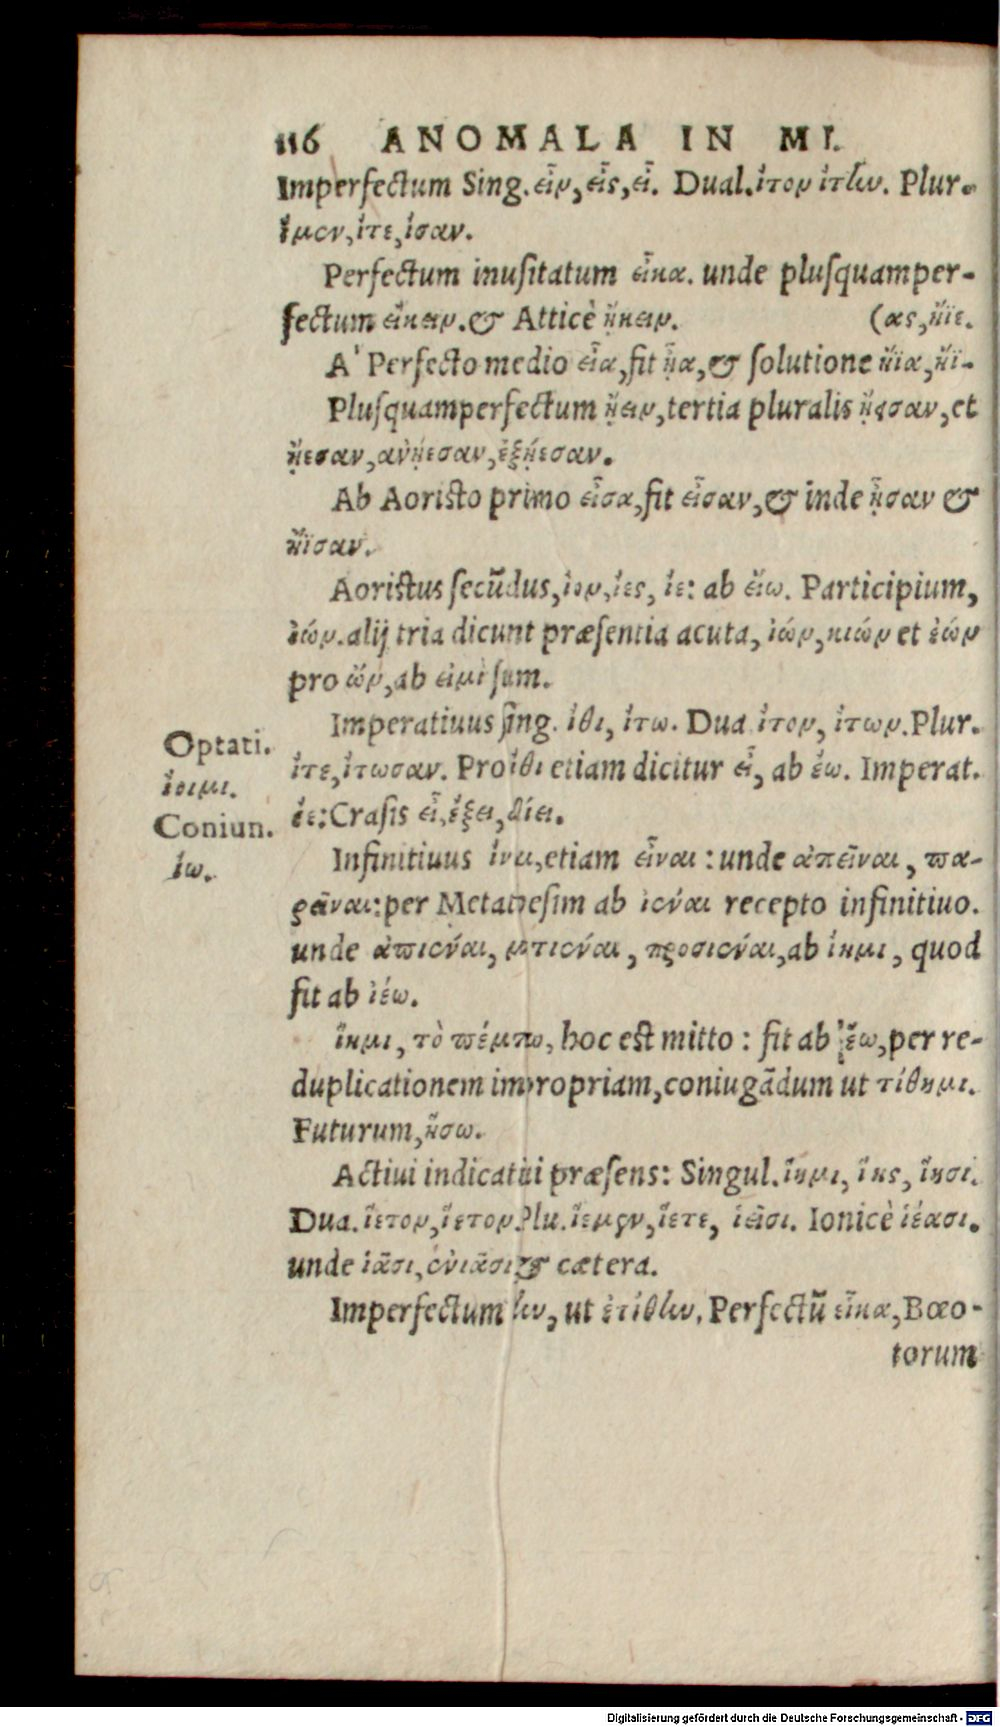 116 ANOMALA IN MI.
Imperfectum Sing. εἶν, εἶς, εἶ. Dual. ἴτον ἴτην. Plur.
ἴμεν, ἴτε, ἴσαν.
Perfectum inusitatum εἶκα. unde plusquamper-
fectum εἴκειν. & Atticè ᾔκειν. (ας, ἤϊε.
A' Perfecto medio εἶα, fit ᾖα, & solutione ἤϊα, ἤϊ-
Plusquamperfectum ᾔειν, tertia pluralis ᾔεσαν, et
ᾔεσαν, ἀνῄεσαν, ἐξῄεσαν.
Ab Aoristo primo εἶσα, fit εἶσαν, & inde ᾖσαν &
ἤϊσαν.
Aoristus secũdus, ἴον, ἴες, ἴε: ab εἴω. Participium,
ἰών. alij tria dicunt præsentia acuta, ἰών, κιών et ἐών
pro ὤν, ab εἰμὶ sum.
Imperatiuus sing. ἴθι, ἴτω. Dua ἴτον, ἴτων. Plur.
ἴτε, ἴτωσαν. Pro ἴθι etiam dicitur εἶ, ab ἔω. Imperat.
ἔε: Crasis εἶ, ἔξει, δίει.
Optati.
ἴοιμι.
Coniun.
ἴω.
Infinitiuus ἴναι, etiam εἶναι: unde ἀπεῖναι, πα-
ρεῖναι: per Metathesim ab ἰέναι recepto infinitiuo.
unde ἀπιέναι, μετιέναι, προσιέναι, ab ἵημι, quod
fit ab ἱέω.
ἵημι, τὸ πέμπω, hoc est mitto: fit ab ἕω, per re-
duplicationem impropriam, coniugãdum ut τίθημι.
Futurum, ἥσω.
Actiui indicatiui præsens: Singul. ἵημι, ἵης, ἵησι.
Dua. ἵετον, ἵετον Plu. ἵεμεν, ἵετε, ἱεῖσι. Ionicè ἱέασι.
unde ἱᾶσι, ἐνιᾶσι & cætera.
Imperfectum ἵην, ut ἐτίθην. Perfectũ εἷκα, Bœo-
torum
Digitalisierung gefördert durch die Deutsche Forschungsgemeinschaft - DFG